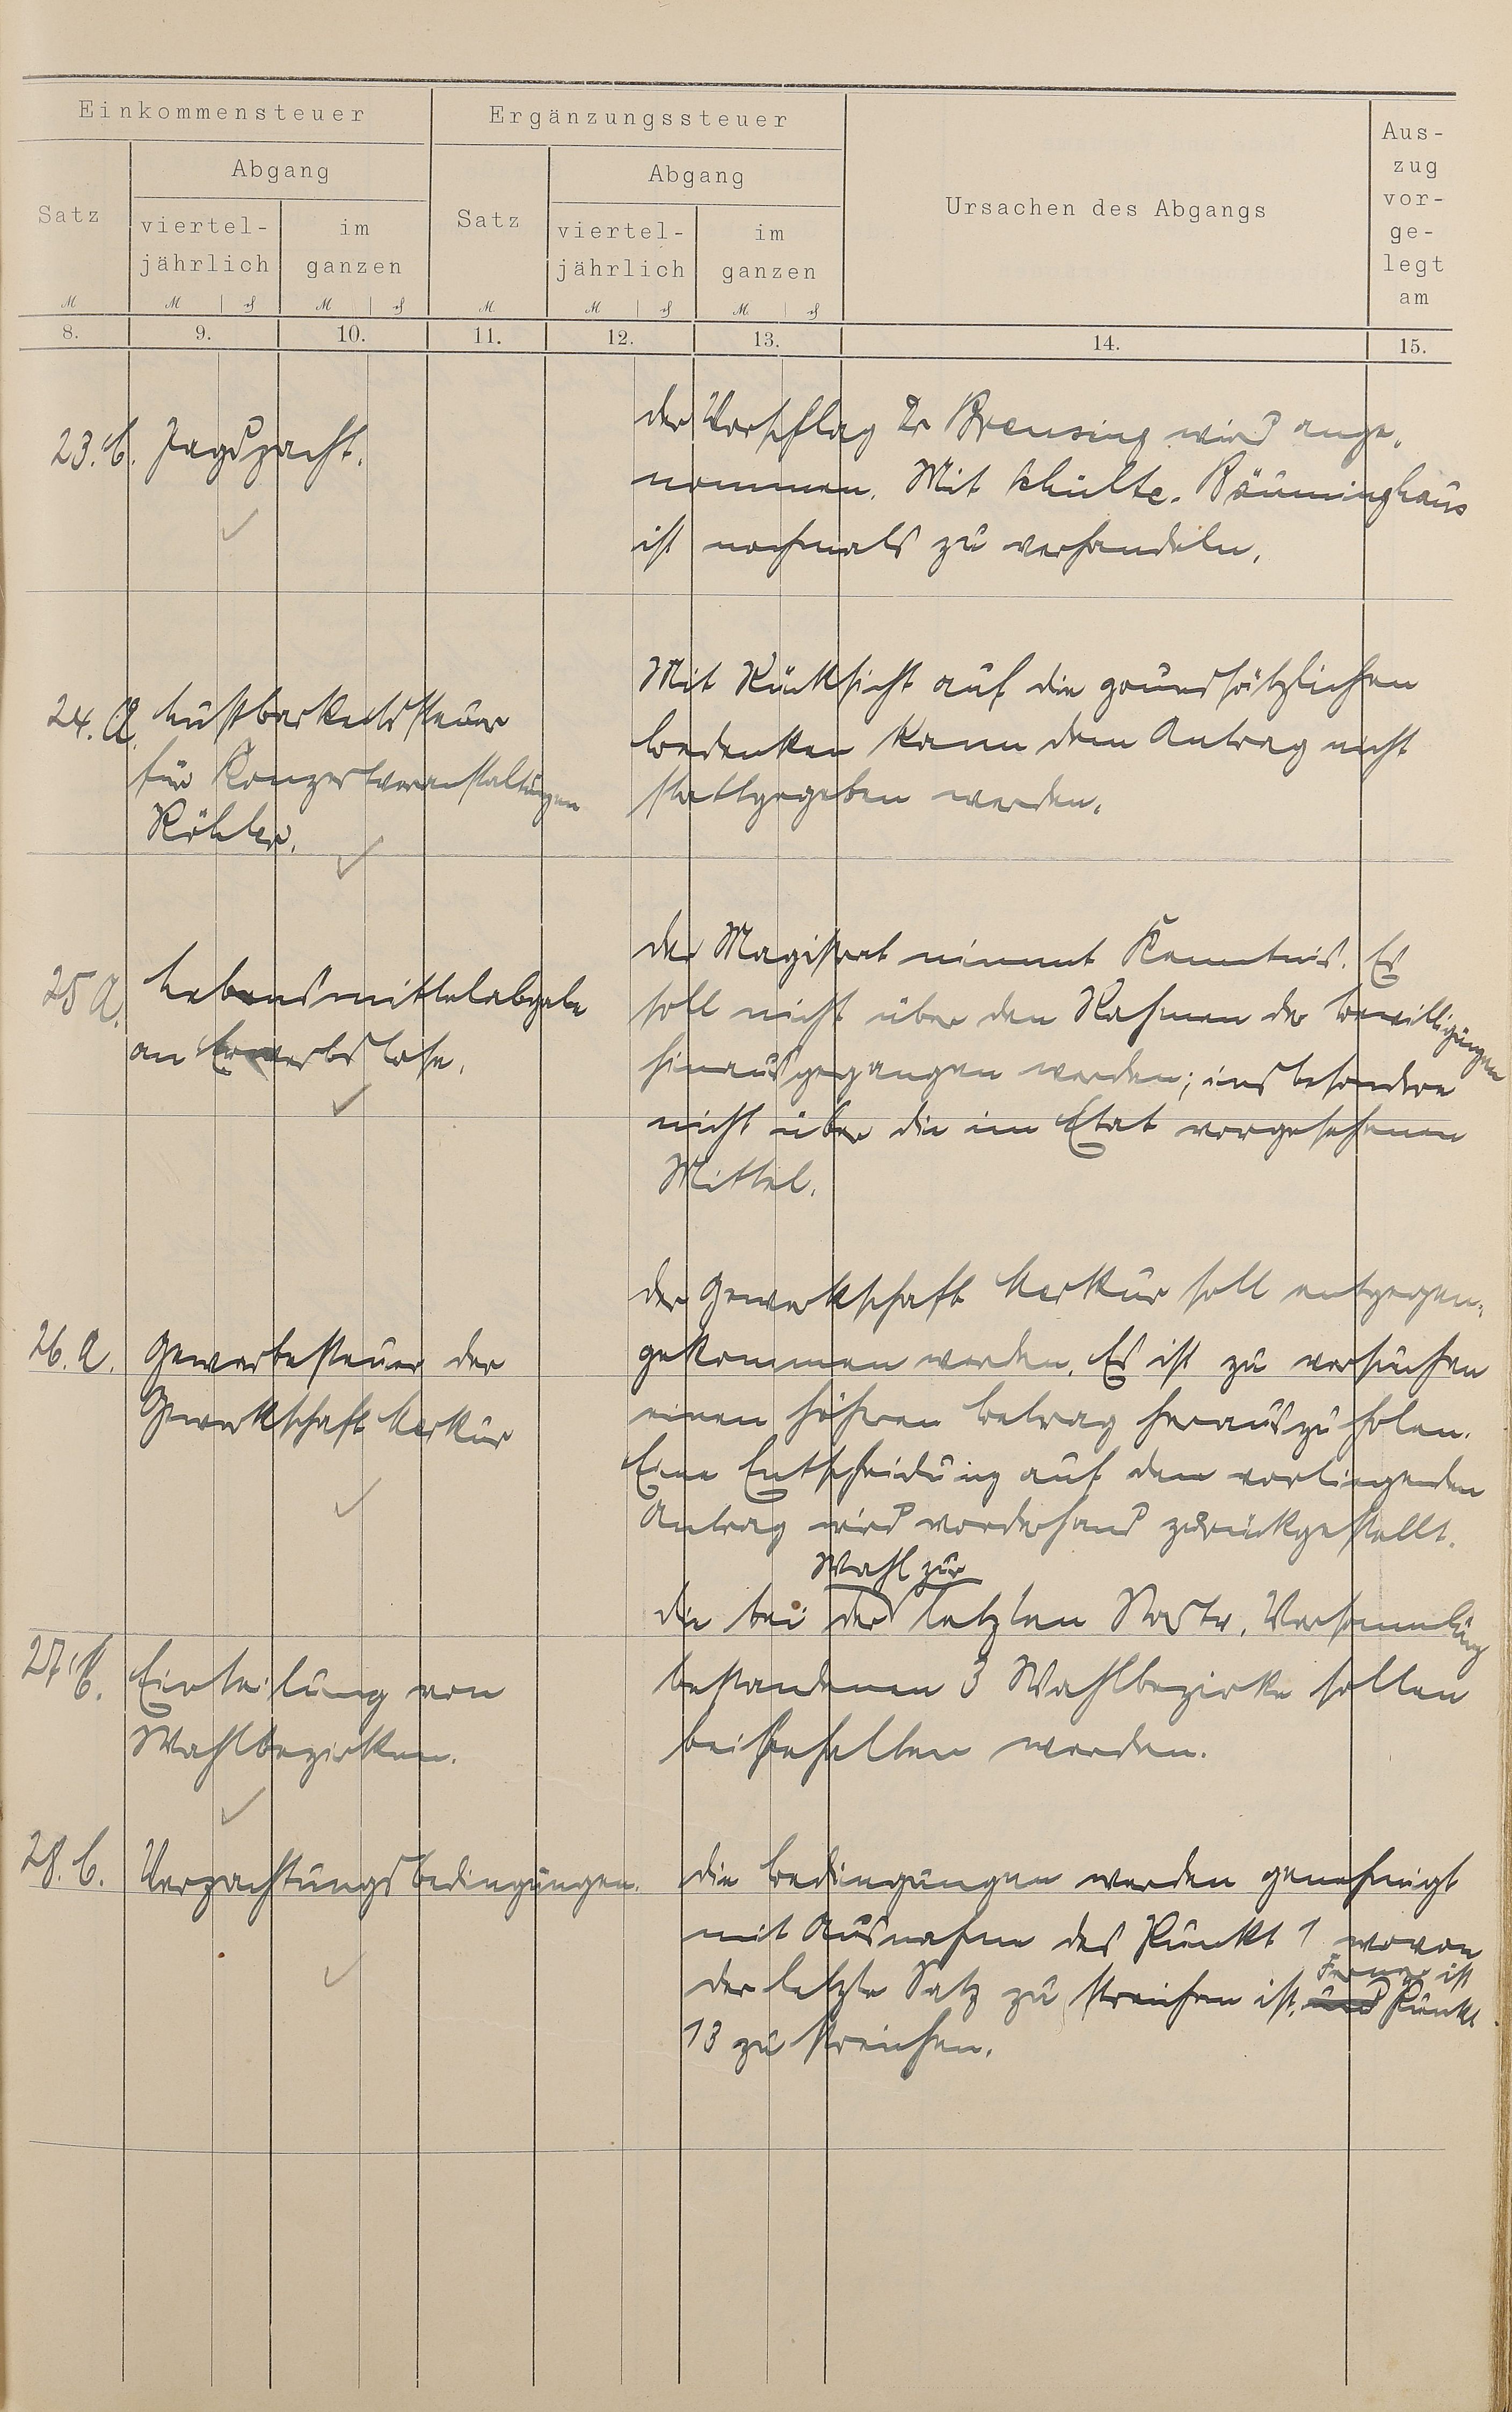 Einkommensteuer
Ergänzungssteuer
Ursachen des Abgangs
Aus-
zug
vor-
ge-
legt
am
Satz
Abgang
viertel-
jährlich
im
ganzen
Satz
Abgang
viertel-
jährlich
im
ganzen
8. 9. 10. 11. 12. 13. 14. 15.
23. b. Jagdpacht.
der Vorschlag Dr Brensing wird ange-
nommen. Mit Schulte-Bäuminghaus
ist nochmals zu verhandeln.
24. a. Lustbarkeitssteuer
für Konzertveranstaltungen
Köhler.
Mit Rücksicht auf die grundsätzlichen
Bedenken kann dem Antrag nicht
stattgegeben werden.
25 a. Lebensmittelabgabe
an Erwerbslose.
der Magistrat nimmt Kenntnis. Es
soll nicht über den Rahmen der Bewilligungen
hinausgegangen werden; insbesondere
nicht über die im Etat vorgesehenen
Mittel.
26. a. Gewerbesteuer der
Gewerkschaft Merkur
der Gewerkschaft Merkur soll entgegen-
gekommen werden. Es ist zu versuchen
einen höheren Betrag herauszuholen.
Eine Entscheidung auf den vorliegenden
Antrag wird vorderhand zurückgestellt.
27. b. Einteilung von
Wahlbezirken.
Wahl zur
die bei der letzten Stadtv. Versammlung
bestandenen 3 Wahlbezirke sollen
beibehalten werden.
28. b. Verpachtungsbedingungen.
die Bedingungen werden genehmigt
mit Ausnahme des Punkt 1 wovon
Ferner ist
der letzte Satz zu streichen ist. und Punkt
13 zu streichen.